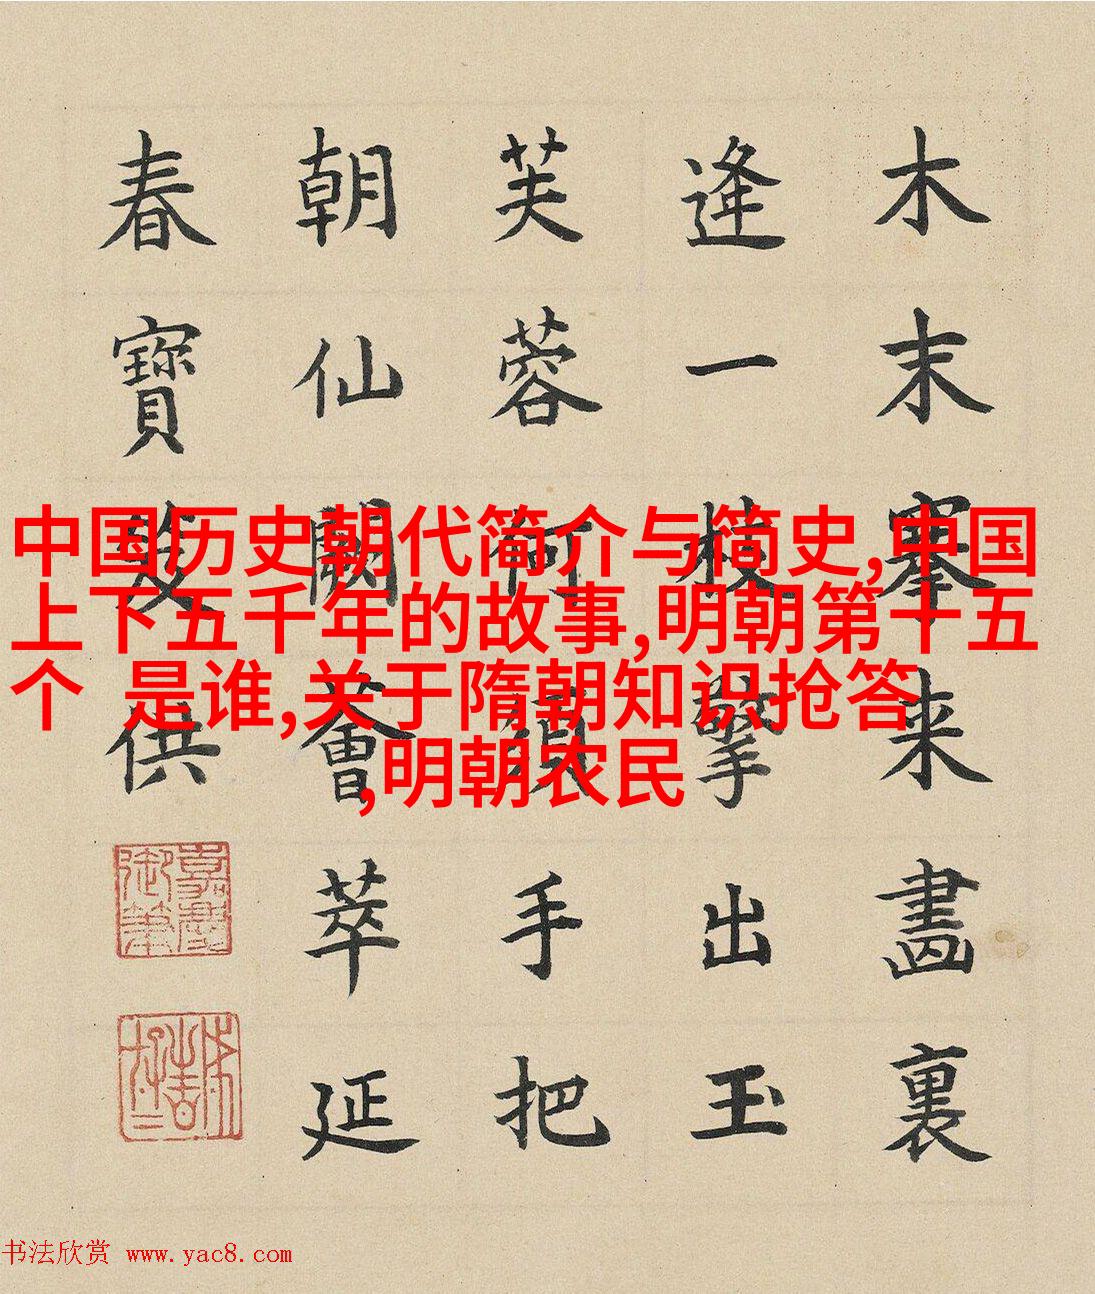 木末搴来畫裏
逢一枝擎出玉
芙蓉何須手把
朝仙闕薈萃延
春寶笈供
嘉慶御筆
中国历史朝代简介与简史,中国
上下五千年的故事,明朝第十五
个 是谁,关于隋朝知识抢答
,明朝农民
书法欣赏 www.yac8.com